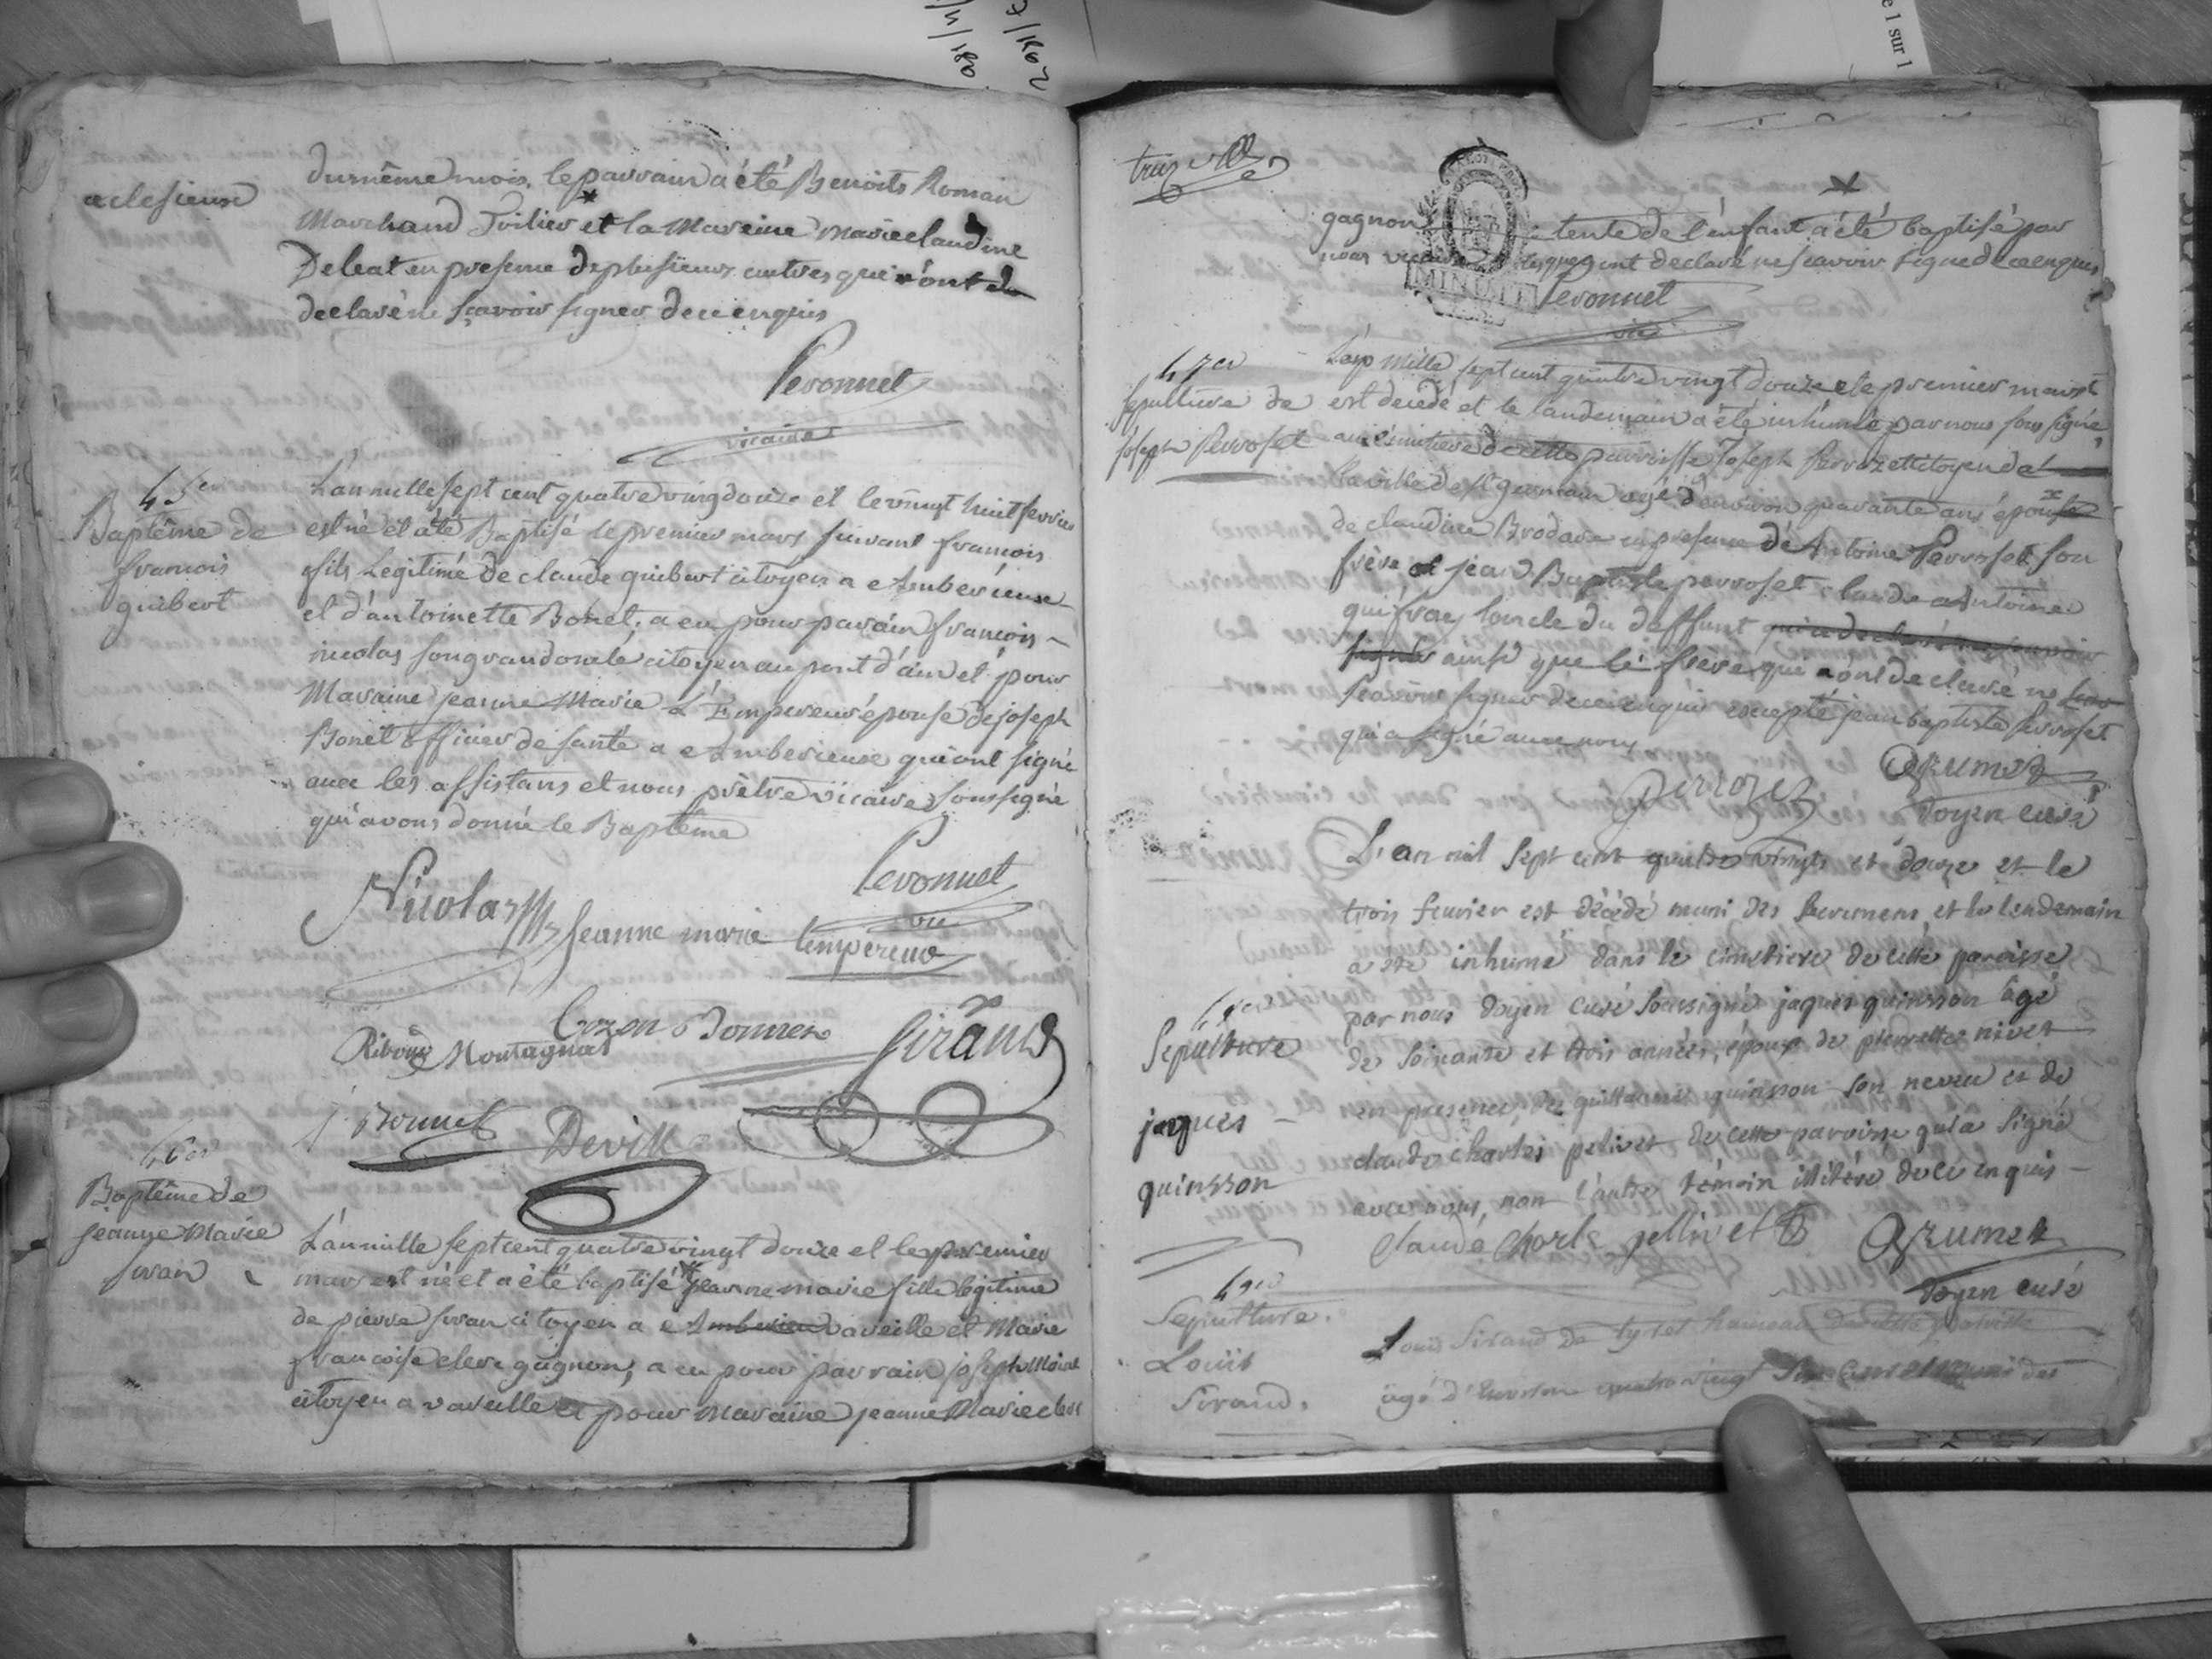 du même mois, le parrain a été Benoits Romain
Marchand Toilier et la Mareine marie claudine
Deleat en presence de plusieurs autres qui n'ont
declaré ne sçavoir signer de ce enquis
Peronnet
vicaire
45er
Baptême de
francois
guibert
L'an mille sept cent quatre vingt douze et le vingt huit fevrier
est né et a été Baptisé le premier mars suivant francois
fils Legitime de claude guibert citoyen a Amberieux
et d'antoinette Bonet, a eu pour parain francois
nicolas son grand oncle citoyen au pont d'ain et pour
Maraine jeanne Marie L'Empereur épouse de joseph
Bonet officier de santé a Amberieux qui ont signé
avec les assistans et nous prêtre vicaire soussigné
qui avons donné le Baptême
Nicolas
Peronnet
vic
Jeanne marie Lempereur
Cozon Bonnet
Montagnat
Sirand
Bonnet
Deville
46er
Baptême de
jeanne Marie
L'an mille sept cent quatre vingt douze et le premier
mars est né et a été baptisé jeanne marie fille légitime
de pierre citoyen a vareille et Marie
francoise clere gagnon, a eu pour parrain joseph
citoyen a vareille et pour Maraine jeanne Marie clere
gagnon tente de l'enfant a été baptisé par
nous vicaire lesquels ont declaré ne scavoir signer de ce enquis
Peronnet
vic
47er
sepulture de
joseph Perroset
L'an mille sept cent quatre vingt douze et le premier mars
est decedé et le landemain a été inhumé par nous sous signé
au cimitiere de cette parroisse Joseph Perrozet citoyen de
la ville de st germain agé d'environ quarante ans épouse
de claudine Brodard en presence de Antoine Perroset son
frère et jean Baptiste perroset, claude antoine
l'oncle du deffunt qui a declaré ne scavoir
signer ainsi que le frère qui n'ont declaré ne
scavoir signer de ce enquis excepté jean baptiste Perroset
qui a signé avec nous
perrozet
Grumet
doyen curé
48er
Sepulture
jaques
quinsson
L'an mil sept cent quatre vingts et douze et le
trois fevrier est décédé muni des sacremens et le lendemain
a été inhumé dans le cimetiere de cette paroisse
par nous doyen curé soussigné jaques quinsson âgé
de soixante et trois années, époux de pierrette nivet
en presence de guillaume quinsson son neveu et de
claude charles pelivet de cette paroisse qui a signé
avec nous, non l'autre témoin illitéré de ce enquis
Claude Charle pellivet
Grumet
doyen curé
49er
Sepulture.
Louis
Sirand.
Louis Sirand de tiret hameau de cette paroisse
âgé d'environ quatre vingt